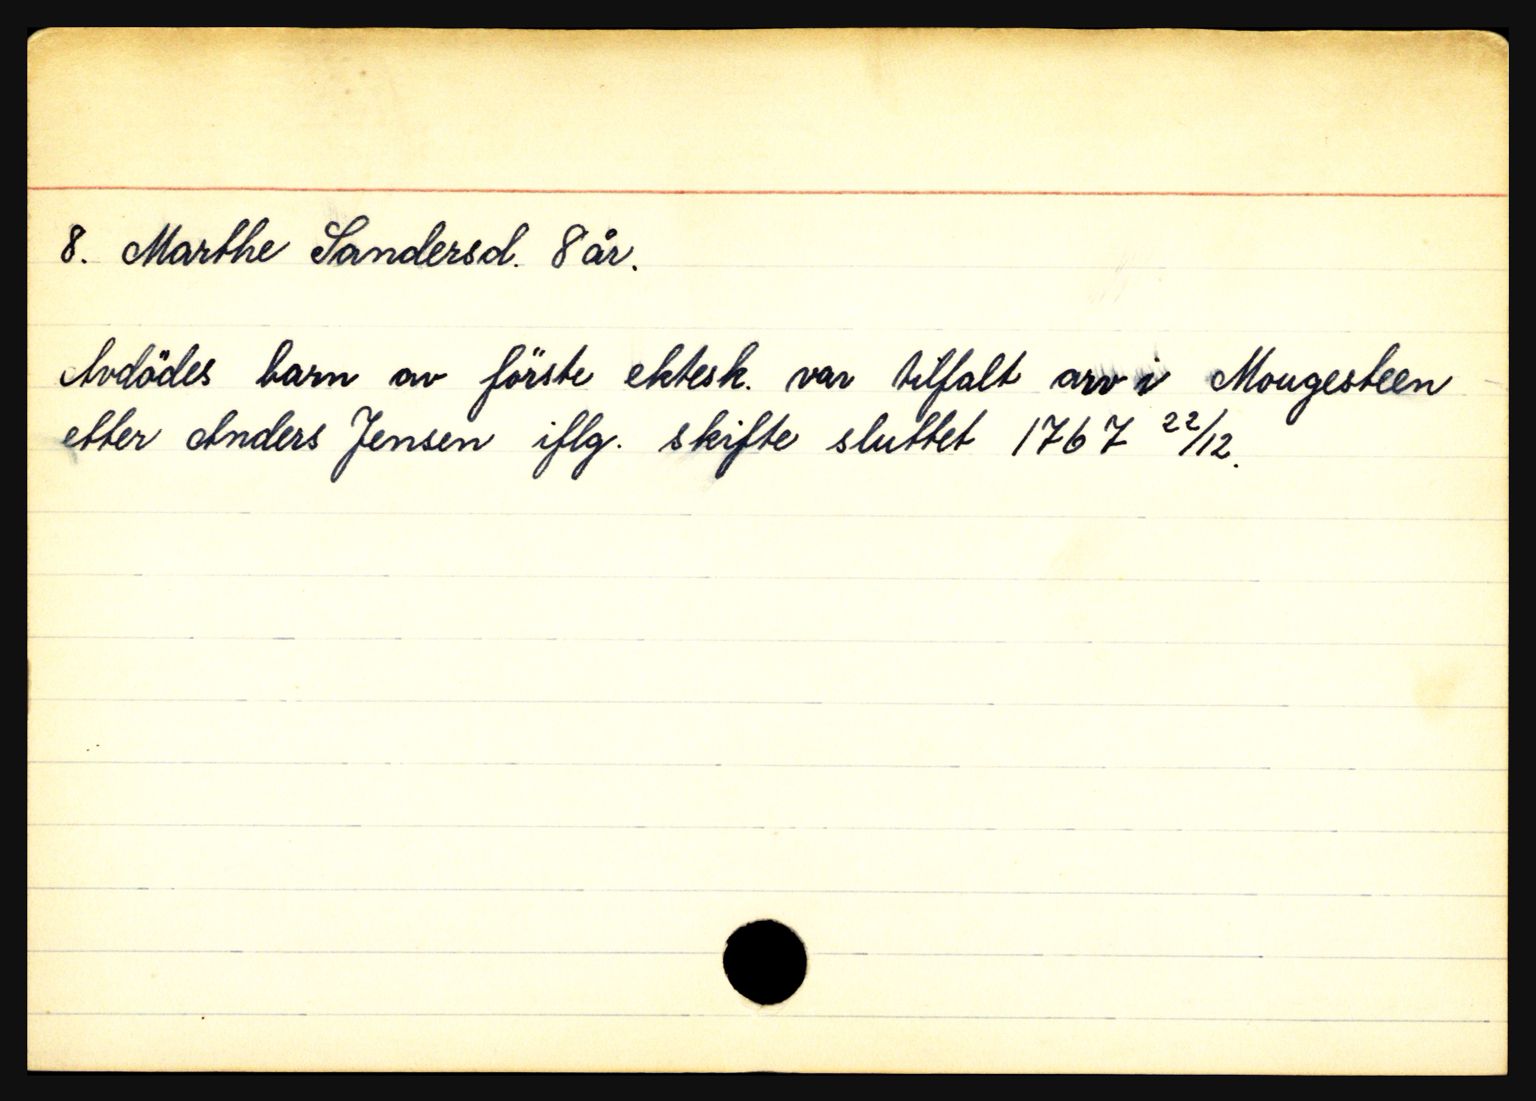 8. Marthe Sandersd. 8 år.
Avdödes barn av förste ektesk. var tilfalt arv i Mougesteen
etter Anders Jensen iflg. skifte sluttet 1767 22/12.